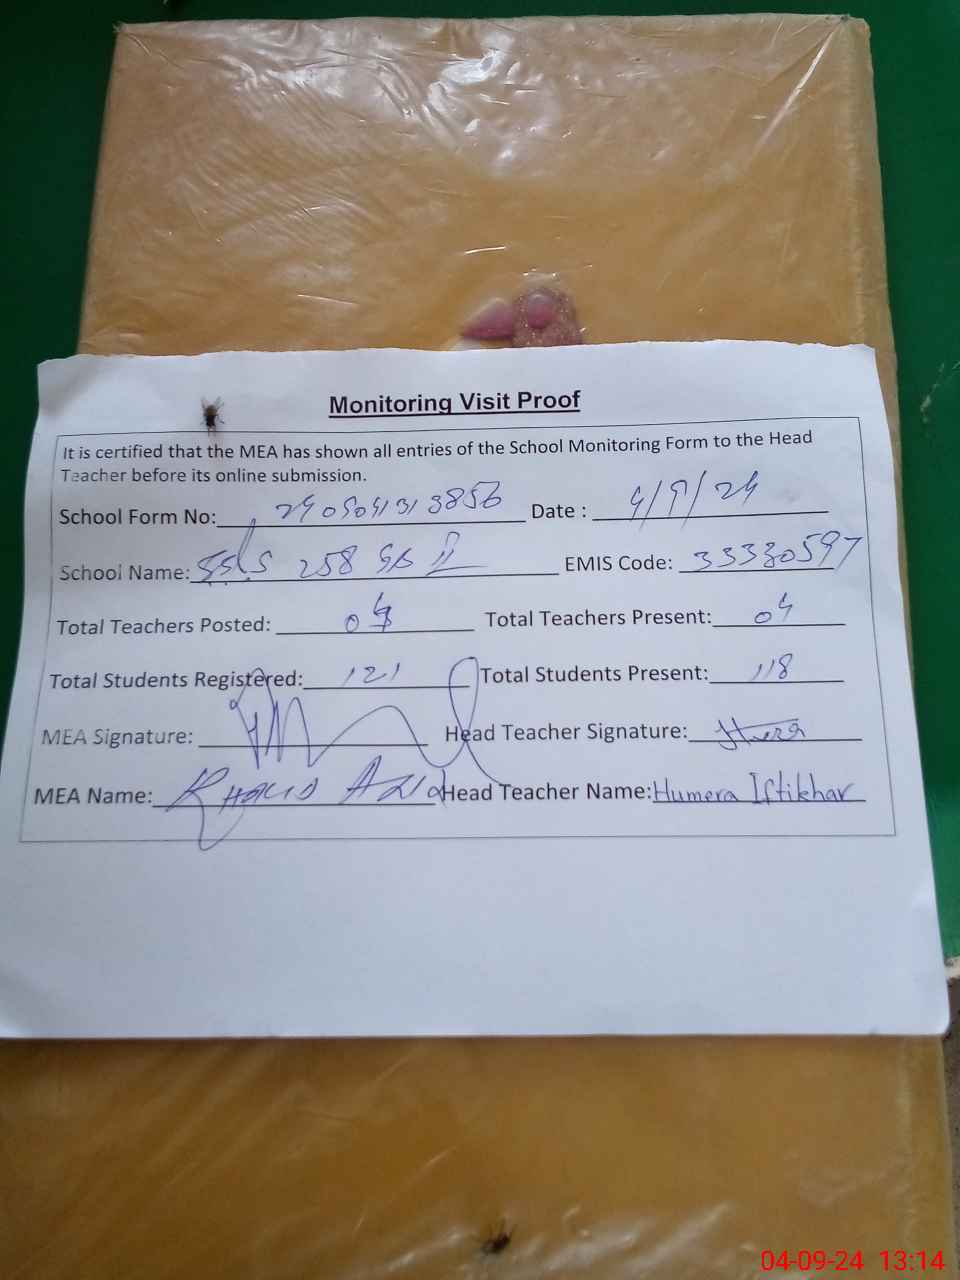 Monitoring Visit Proof
It is certified that the MEA has shown all entries of the School Monitoring Form to the Head
Teacher before its online submission.
School Form No: Date : 4/9/24
School Name: 258 GB EMIS Code: 33330597
Total Teachers Posted: 04 Total Teachers Present: 04
Total Students Registered: 121 Total Students Present: 118
MEA Signature: Head Teacher Signature:
MEA Name: Khalid Head Teacher Name: Humera Iftikhar
04-09-24 13:14